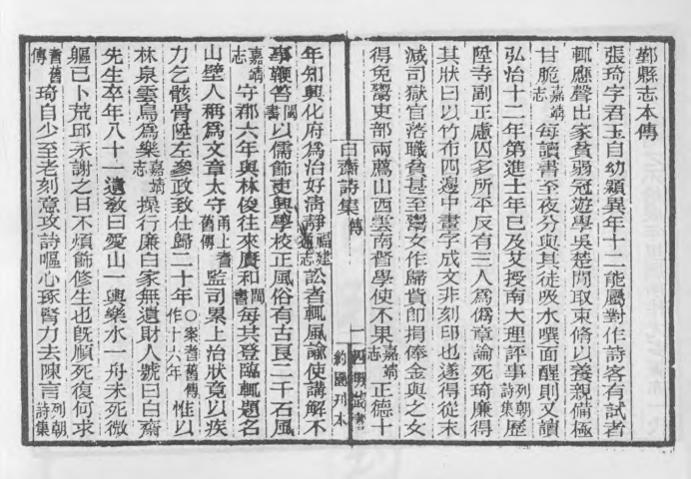 鄞縣志本傳
張琦字君玉自幼穎異年十二能屬對作詩客有試者
輒應聲出家貧弱冠遊學吳楚間取束脩以養親備極
甘脆嘉靖志每讀書至夜分與其徒吸水噀面醒則又讀
弘治十二年第進士年已及艾授南大理評事列朝詩集歷
陞寺副正慮囚多所平反有三人為偽章論死琦廉得
其狀曰以竹布四邊中畫字成文非刻印也遂得從末
減司獄官落職貧甚至鬻女作歸貲即捐俸金與之女
得免鬻吏部兩薦山西雲南督學使不果嘉靖志正德十
白齋詩集 傳
一
四明叢書
約園刊本
年知興化府為治好清靜福建通志訟者輒風諭使講解不
事鞭笞閩書以儒飾吏興學校正風俗有古良二千石風
嘉靖志守郡六年與林俊往來賡和閩書每共登臨輒題名
山壁人稱為文章太守甬上耆舊傳監司累上治狀竟以疾
力乞骸骨陞左參政致仕歸二十年〇案耆舊傳作十六年惟以
林泉雲鳥為樂嘉靖志操行廉白家無遺財人號曰白齋
先生卒年八十一遺教曰愛山一輿樂水一舟未死微
軀已卜荒邱永謝之日不煩飾修生也旣順死復何求
耆舊傳琦自少至老刻意攻詩嘔心琢腎力去陳言列朝詩集